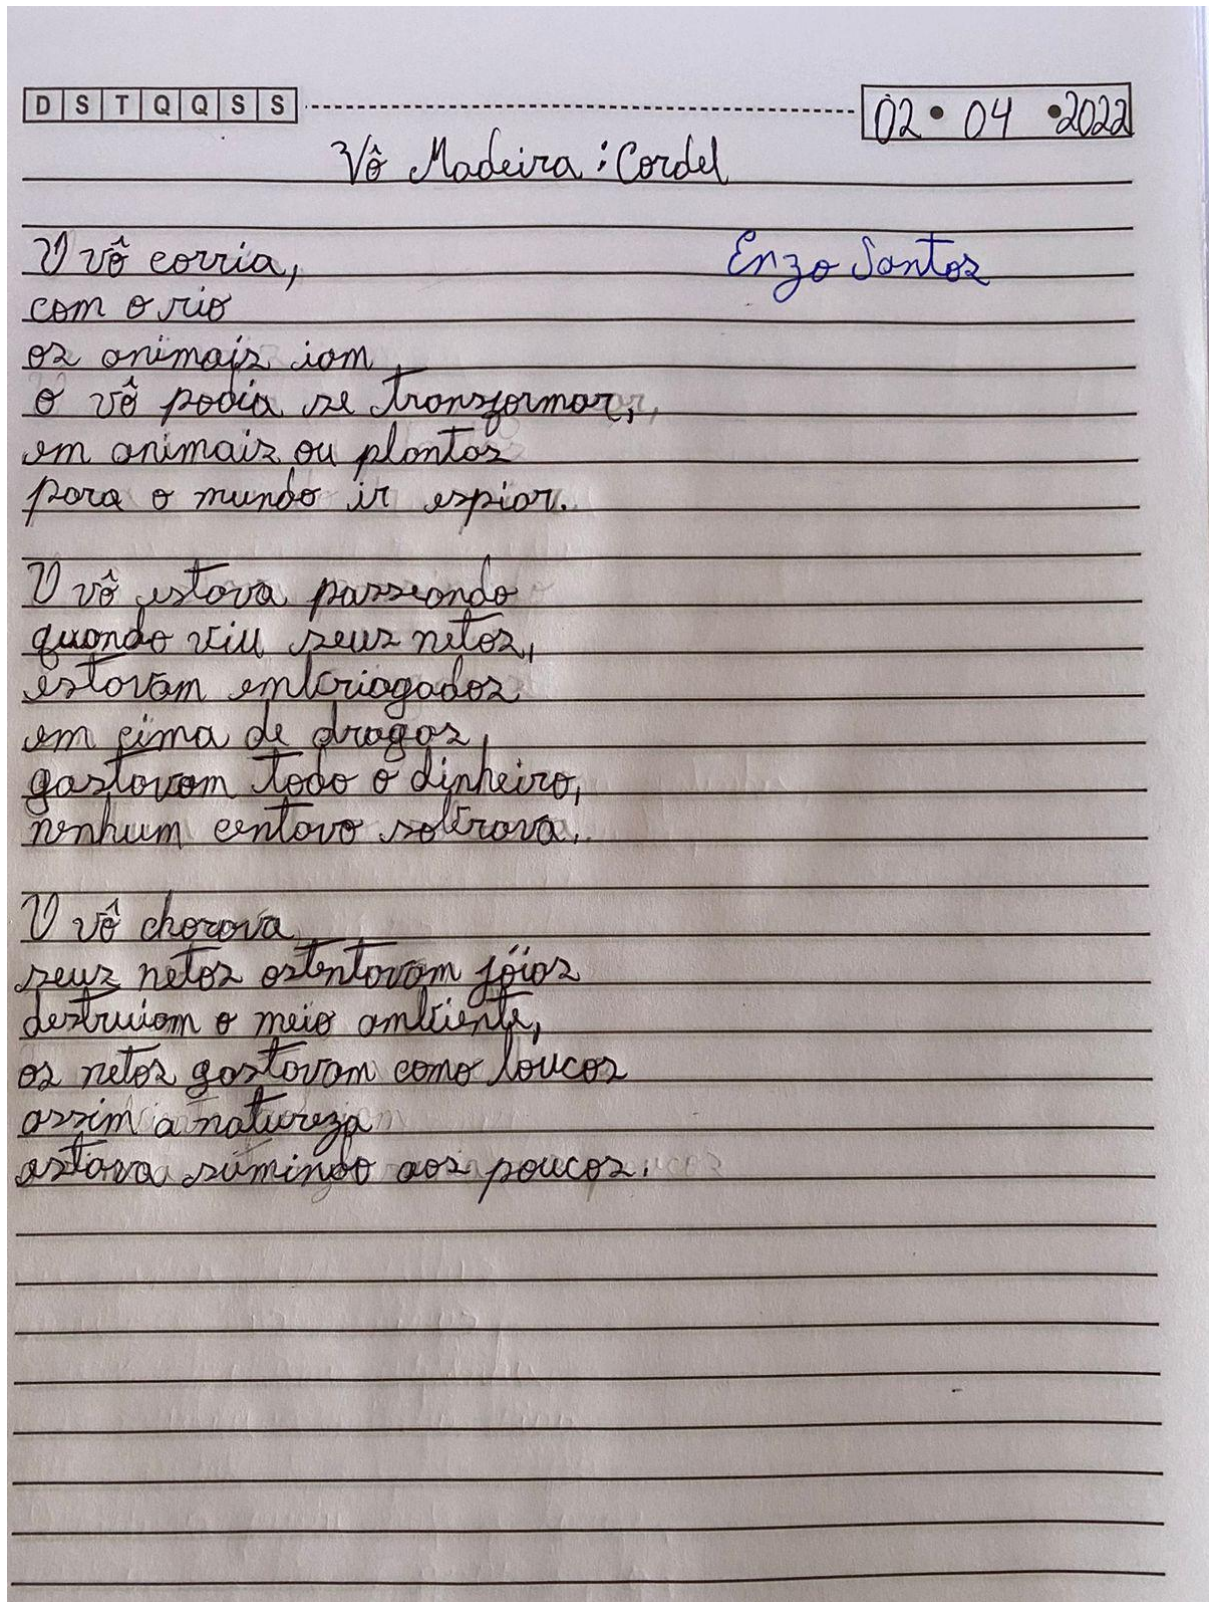 D S T Q Q S S 02 • 04 • 2022
Vô Madeira : Cordel
O vô corria, Enzo Santos
com o rio
os animais iam
o vô podia se transformar,
em animais ou plantas
para o mundo ir espiar.
O vô estava passeando
quando viu seus netos,
estavam embriagados
em cima de drogas,
gastavam todo o dinheiro,
nenhum centavo sobrava.
O vô chorava
seus netos ostentavam jóias
destruiam o meio ambiente,
os netos gastavam como loucos
assim a natureza
estava sumindo aos poucos.